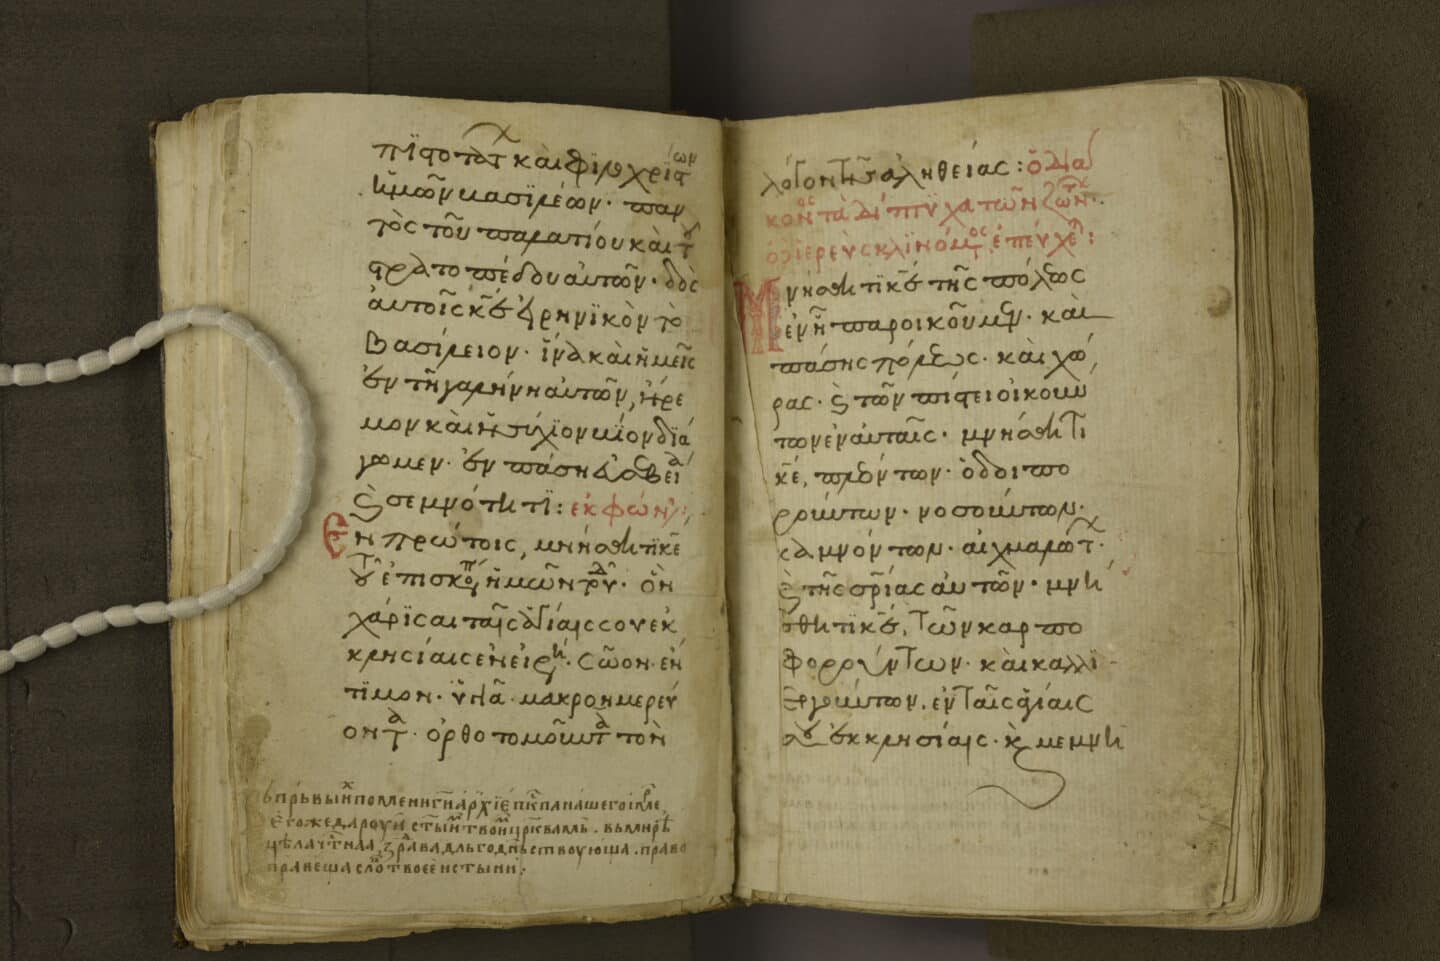 πϊστοτάτ καὶ φϊλοχρίστων
ἡμῶν βασϊλέων· παν
τὸς τοῦ παλατίου καὶ τοῦ
στρατοπέδου αὐτῶν· δὸς
αὐτοῖς κε εἰρηνϊκὸν τὸ
βασίλειον· ἵνα καὶ ἡμεῖς
ἐν τῆ γαλήνη αὐτῶν, ἤρε
μον καὶ ἡσύχϊον βίον διά
γωμεν· ἐν πάση εὐσεβεία
ϗ σεμνότητϊ: ἐκφών
Ἐν πρώτοις, μνήσθητϊ κε
τοῦ ἐπισκόπ ἡμῶν τοῦδ· ὃν
χάρϊσαι ταῖς ἁγίαις σου ἐκ
κλησίαις ἐν εἰρή· σῶον· ἔν
τϊμον· ὑγιᾶ· μακροημερεύ
οντα· ὀρθοτομοῦντα τὸν
ꙗже дароуи стыⷨ твоиⷨ црквамъ. въ мирѣ
цѣла чтна, здрава дльгоднъствоующа. право
правеща слово твоее истыни.
λόγον τῆς σῆς ἀληθείας: ὁ διά
κονος τὰ δίπτυχα τῶν ζώντ
ὁ ἱερεὺς κλϊνόμενος ἐπεύχετ:
Μνήσθητϊ κε τῆς πόλεως
ἐν ἧ παροικοῦμεν· καὶ
πάσης πόλεως· καὶ χώ
ρας· ϗ τῶν πίστει οἰκούν
των ἐν αὐταῖς· μνήσθητι
κε, πλεόντων· ὁδοιπο
ρούντων· νοσούντων·
καμνόντων· αἰχμαλώτ·
ϗ τῆς σρίας αὐτῶν· μνή
σθητϊ κε, τῶν καρπο
φορούντων· καὶ καλλϊ
εργούντων, ἐν ταῖς ἁγίαις
σου ἐκκλησίαις· ϗ μεμνη